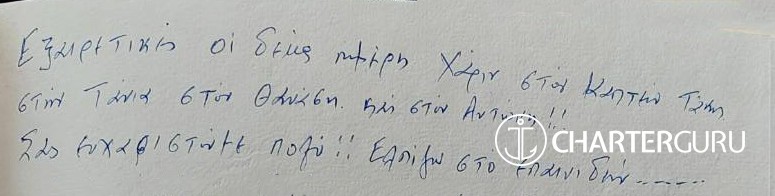 Εξαιρετικές οι δέκα ημέρες Χάριν στον Καπτέν Τάκη
στην Τάνια στον Θανάση. και στον Αντώνη!!
Σας ευχαριστούμε πολύ!! Ελπίζω στο επανιδείν......
CHARTERGURU